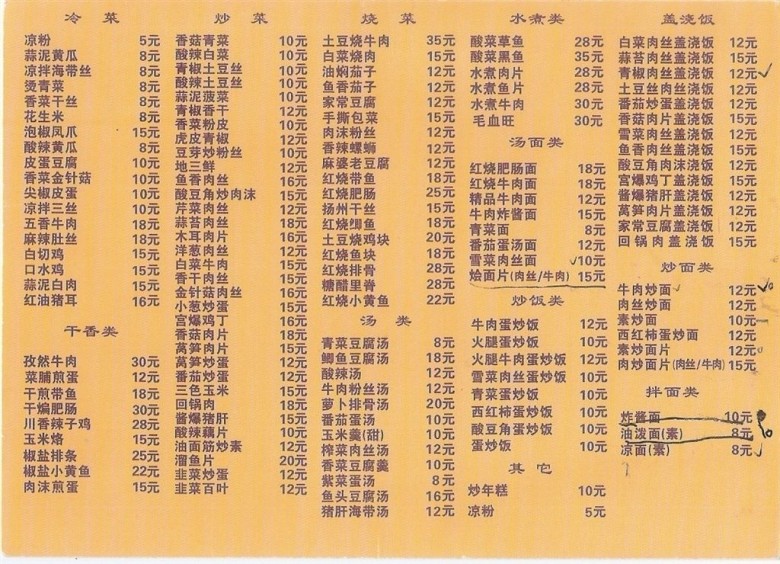 冷 菜
凉粉 5元
蒜泥黄瓜 8元
凉拌海带丝 8元
烫青菜 8元
香菜干丝 8元
花生米 8元
泡椒凤爪 15元
酸辣黄瓜 8元
皮蛋豆腐 10元
香菜金针菇 10元
尖椒皮蛋 10元
凉拌三丝 10元
五香牛肉 18元
麻辣肚丝 18元
白切鸡 15元
口水鸡 15元
蒜泥白肉 15元
红油猪耳 16元
干香类
孜然牛肉 30元
菜脯煎蛋 12元
干煎带鱼 18元
干煸肥肠 30元
川香辣子鸡 28元
玉米烙 15元
椒盐排条 25元
椒盐小黄鱼 22元
肉沫煎蛋 15元
炒 菜
香菇青菜 10元
酸辣白菜 10元
青椒土豆丝 10元
酸辣土豆丝 10元
蒜泥菠菜 10元
青椒香干 12元
香菜粉皮 10元
虎皮青椒 12元
豆芽炒粉丝 10元
地三鲜 12元
鱼香肉丝 16元
酸豆角炒肉沫 15元
芹菜肉丝 12元
蒜苔肉丝 15元
木耳肉片 16元
洋葱肉丝 12元
白菜牛肉 15元
香干肉丝 15元
金针菇肉丝 16元
小葱炒蛋 12元
宫爆鸡丁 16元
香菇肉片 18元
莴笋肉片 15元
莴笋炒蛋 12元
番茄炒蛋 12元
三色玉米 15元
回锅肉 18元
酱爆猪肝 15元
酸辣藕片 12元
油面筋炒素 12元
溜鱼片 20元
韭菜炒蛋 12元
韭菜百叶 12元
烧 菜
土豆烧牛肉 35元
白菜烧肉 15元
油焖茄子 12元
鱼香茄子 12元
家常豆腐 12元
手撕包菜 15元
肉沫粉丝 12元
香辣螺蛳 12元
麻婆老豆腐 12元
红烧带鱼 18元
红烧肥肠 25元
扬州干丝 15元
红烧鲫鱼 18元
土豆烧鸡块 20元
红烧鱼块 18元
红烧排骨 28元
糖醋里脊 28元
红烧小黄鱼 22元
汤 类
青菜豆腐汤 8元
鲫鱼豆腐汤 18元
酸辣汤 12元
牛肉粉丝汤 12元
萝卜排骨汤 20元
番茄蛋汤 10元
玉米羹(甜) 10元
榨菜肉丝汤 12元
香菜豆腐羹 10元
紫菜蛋汤 8元
鱼头豆腐汤 16元
猪肝海带汤 12元
水煮类
酸菜草鱼 28元
酸菜黑鱼 35元
水煮肉片 28元
水煮鱼片 28元
水煮牛肉 30元
毛血旺 30元
汤面类
红烧肥肠面 18元
红烧牛肉面 18元
精品牛肉面 12元
牛肉炸酱面 15元
青菜面 8元
番茄蛋汤面 12元
雪菜肉丝面 10元
烩面片(肉丝/牛肉) 15元
炒饭类
牛肉蛋炒饭 12元
火腿蛋炒饭 10元
火腿牛肉蛋炒饭 15元
雪菜肉丝蛋炒饭 12元
青菜蛋炒饭 10元
西红柿蛋炒饭 12元
酸豆角蛋炒饭 12元
蛋炒饭 10元
其 它
炒年糕 10元
凉粉 5元
盖浇饭
白菜肉丝盖浇饭 12元
蒜苔肉丝盖浇饭 12元
青椒肉丝盖浇饭 12元
土豆丝肉丝盖浇饭 12元
番茄炒蛋盖浇饭 12元
香菇肉片盖浇饭 15元
雪菜肉丝盖浇饭 12元
鱼香肉丝盖浇饭 15元
酸豆角肉沫盖浇饭 12元
宫爆鸡丁盖浇饭 15元
酱爆猪肝盖浇饭 15元
莴笋肉片盖浇饭 15元
家常豆腐盖浇饭 12元
回锅肉盖浇饭 15元
炒面类
牛肉炒面 12元
肉丝炒面 12元
素炒面 10元
西红柿蛋炒面 12元
素炒面片 12元
肉炒面片(肉丝/牛肉) 15元
拌面类
炸酱面 10元
油泼面(素) 8元
凉面(素) 8元